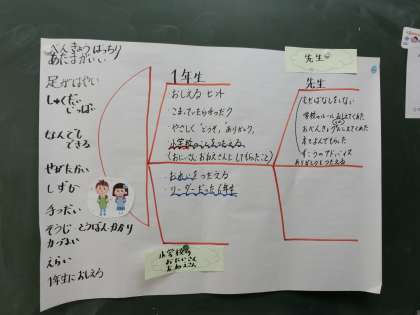 べんきょうばっちり
あたまがいい
足がはやい
しゅくだい
いっぱい
なんでも
できる
せがたかい
しずか
手つだい
そうじ とうばん・カカリ
かっこいい
えらい
1年生におしえる
1年生
おしえる ヒント
こまっていたらたすける
やさしく「どうぞ、ありがとう」
小学校のことをつたえる
(おにいさん、おねえさんにしてもらったこと)
おれいをつたえる
リーダーだった6年生
小学校の
おにいさん
おねえさん
先生
先生
学校のルール
おしえてくれた
ありがとうをつたえる